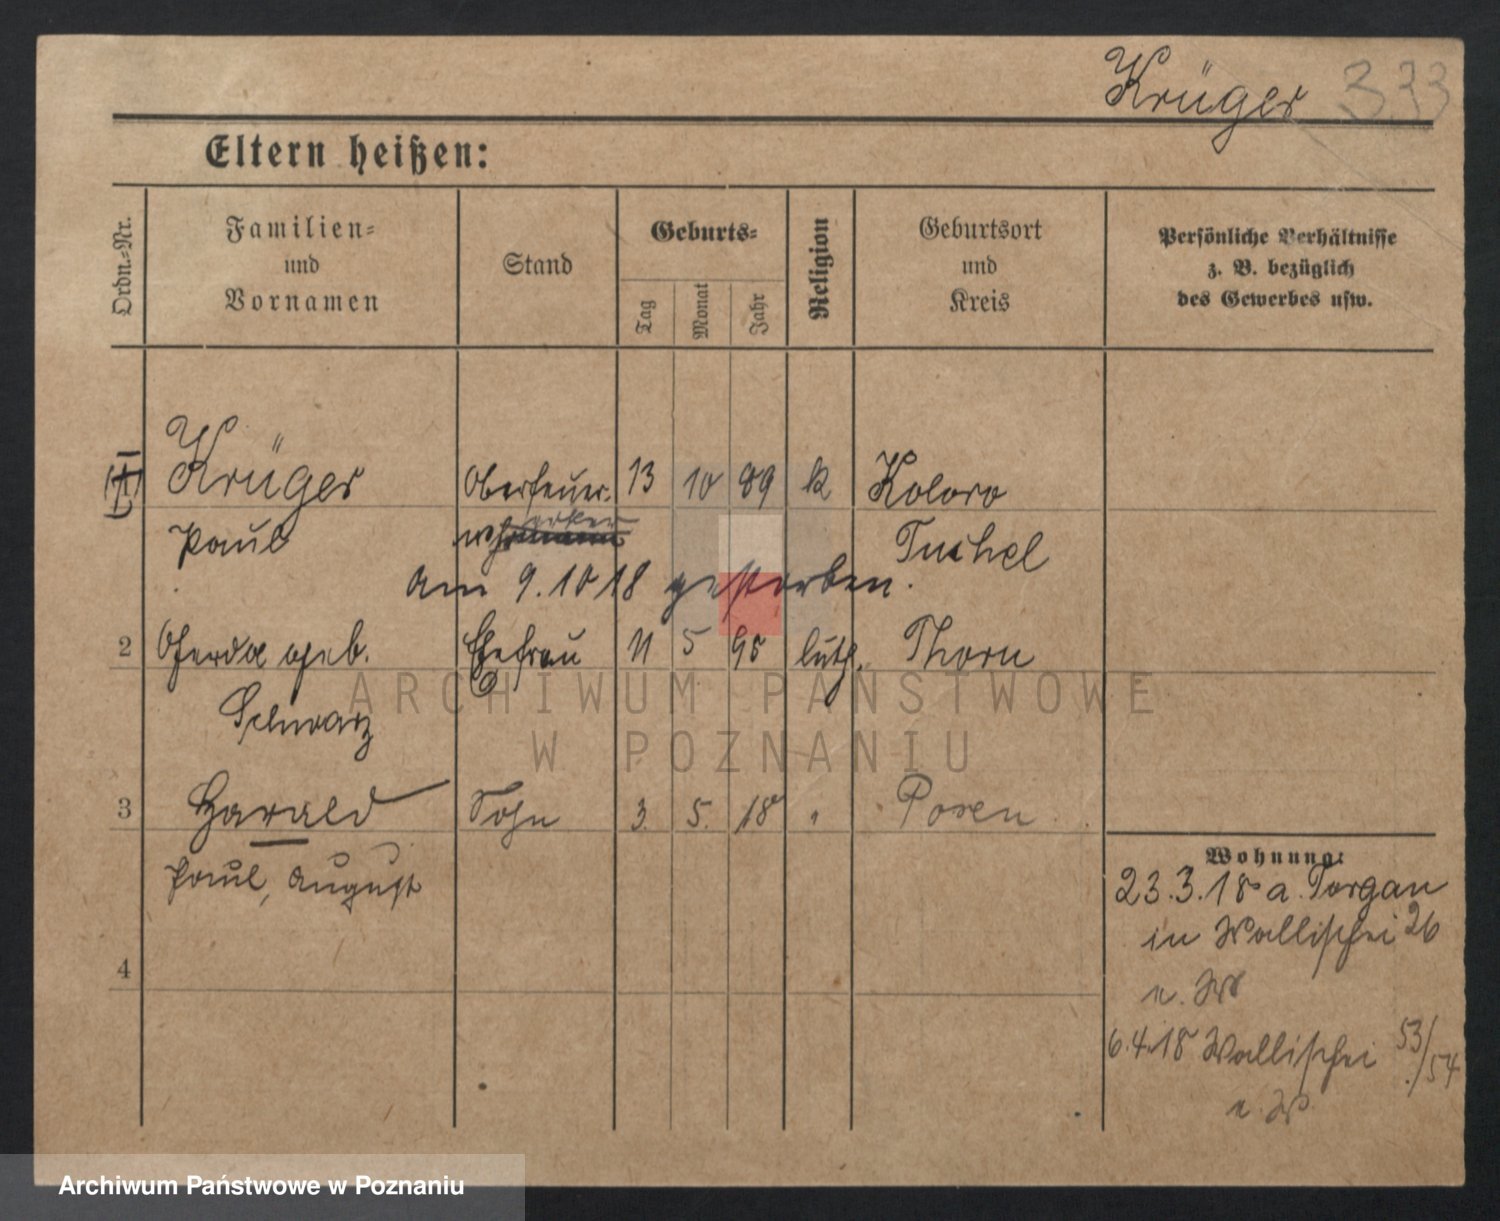 Krüger 333
Eltern heißen:
Ordn.-Nr.
Familien-
und
Vornamen
Stand
Geburts-
Tag
Monat
Jahr
Religion
Geburtsort
und
Kreis
Persönliche Verhältnisse
z. B. bezüglich
des Gewerbes usw.
Krüger Oberfeuer- 13 10 89 k Koloro
Paul Tuchel
am 9.10 18 gestorben.
2 Gerda geb. Ehefrau 11 5 95 luth. Thorn
Schwarz
ARCHIWUM PAŃSTWOWE
W POZNANIU
3 Harald Sohn 3. 5. 18 " Posen
Paul, August
4
Wohnung:
23.3.18 a. Torgau
in Wallischei 26
6.4.18 Wallischei 53/54
Archiwum Państwowe w Poznaniu